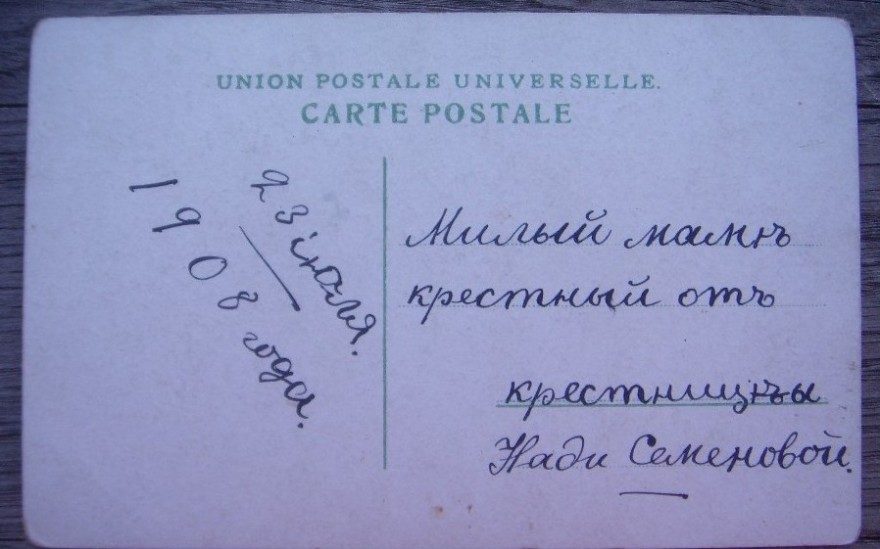 UNION POSTALE UNIVERSELLE.
CARTE POSTALE
23 іюля.
1908 года.
Милый мамѣ
крестный отъ
крестницѣы
Нади Семеновой.